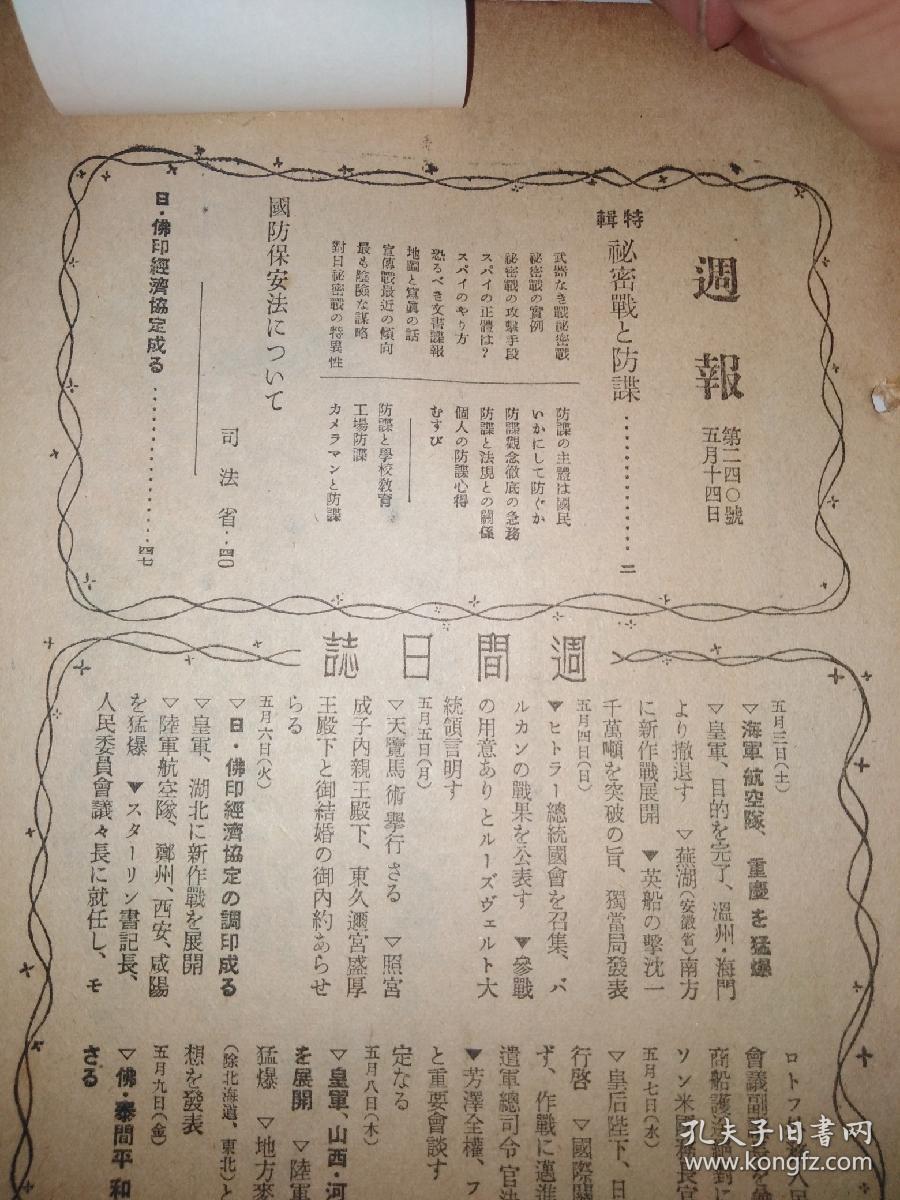 週報
第二四〇號
五月十四日
特輯
祕密戰と防諜……………二
武器なき戰祕密戰
祕密戰の實例
祕密戰の攻擊手段
スパイの正體は？
スパイのやり方
恐るべき文書諜報
地圖と寫眞の話
宣傳戰最近の傾向
最も陰險な謀略
對日祕密戰の特異性
防諜の主體は國民
いかにして防ぐか
防諜觀念徹底の急務
防諜と法規との關係
個人の防諜心得
むすび
防諜と學校敎育
工場防諜
カメラマンと防諜
國防保安法について
司法省‥四〇
日・佛印經濟協定成る……………四七
週間日誌
五月三日(土)
▽海軍航空隊、重慶を猛爆
▽皇軍、目的を完了、溫州・海門
より撤退す ▽蕪湖(安徽省)南方
に新作戰展開 ▼英船の擊沈一
千萬噸を突破の旨、獨當局發表
五月四日(日)
▼ヒトラー總統國會を召集、バ
ルカンの戰果を公表す ▼參戰
の用意ありとルーズヴェルト大
統領言明す
五月五日(月)
▽天覽馬術擧行さる ▽照宮
成子內親王殿下、東久邇宮盛厚
王殿下と御結婚の御內約あらせ
らる
五月六日(火)
▽日・佛印經濟協定の調印成る
▽皇軍、湖北に新作戰を展開
▽陸軍航空隊、鄭州、西安、咸陽
を猛爆 ▼スターリン書記長、
人民委員會議々長に就任し、モ
ロトフ
會議副
商船護
ソン米
五月七日(水)
▽皇后陛下、日
行啓 ▽國際關
ず、作戰に邁進
遣軍總司令官決
▼芳澤全權、フ
と重要會談す
定なる
五月八日(木)
▽皇軍、山西・河
を展開 ▽陸軍
猛爆 ▽地方麥
(除北海道、東北)と
想を發表
五月九日(金)
▽佛・泰間平和
さる
孔夫子旧书网
www.kongfz.com